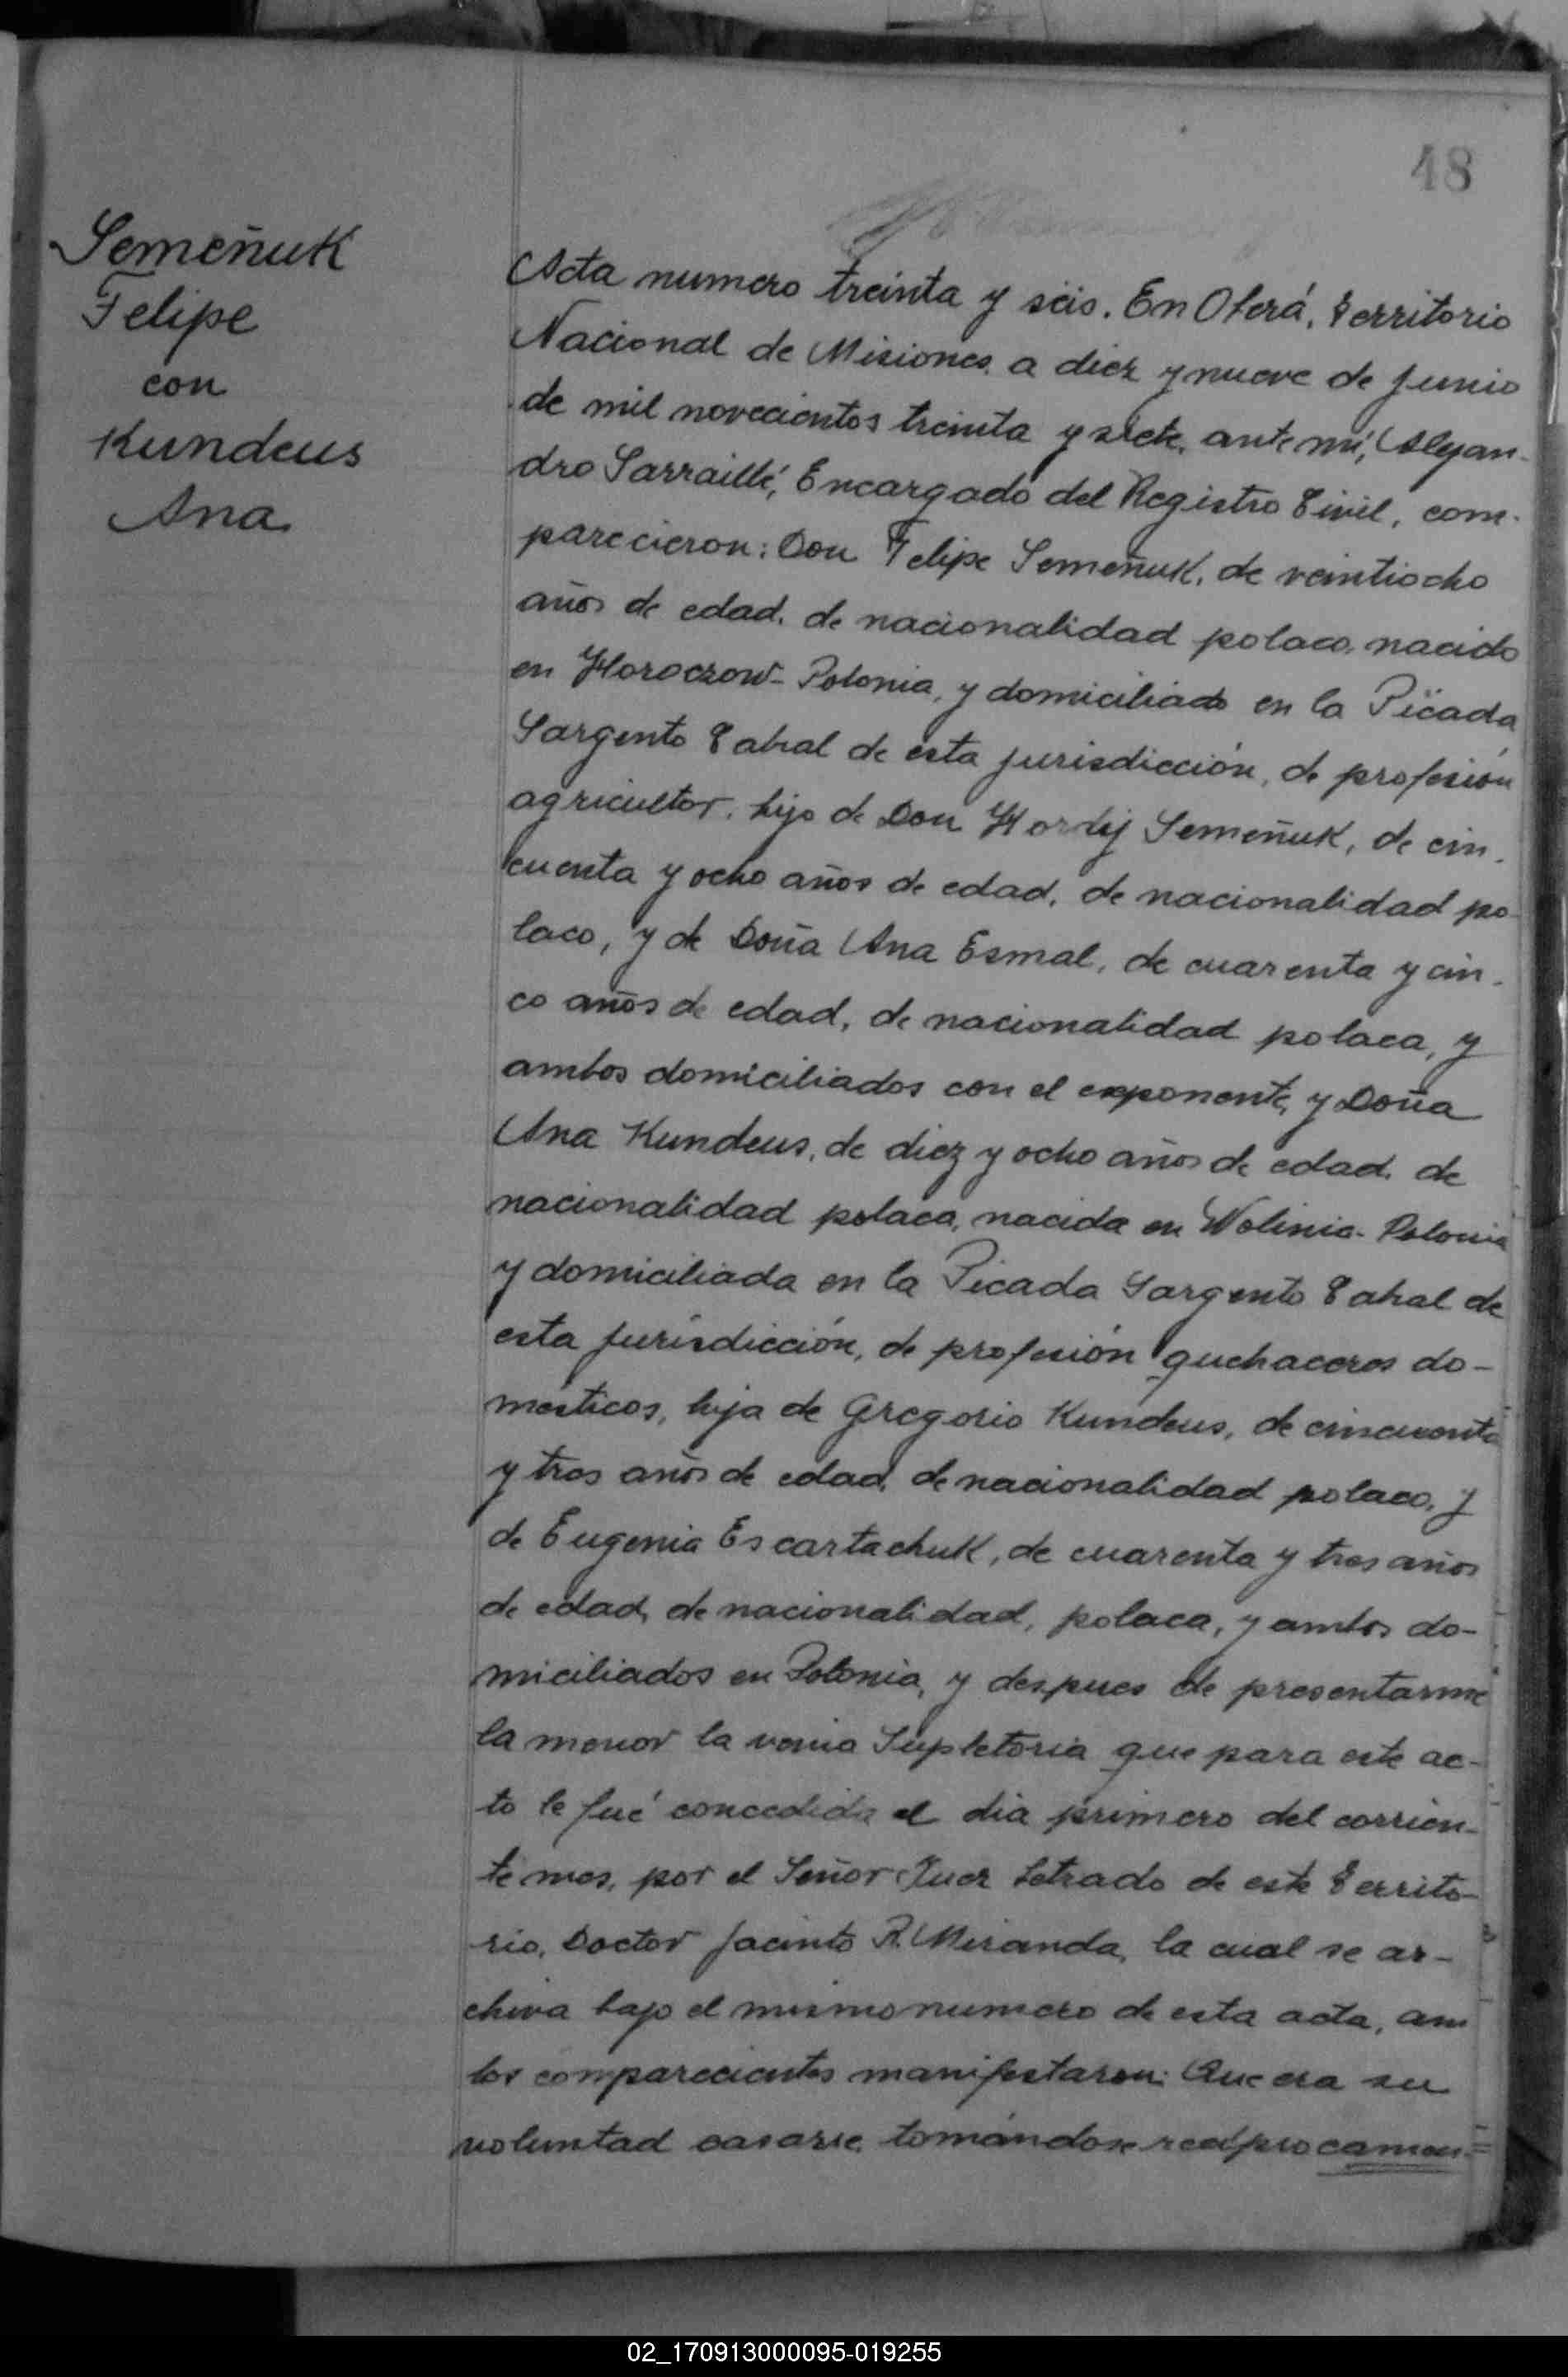 48
Semeñuk
Felipe
con
Kundeus
Ana
Acta numero treinta y seis. En Oberá, Territorio
Nacional de Misiones, a diez y nueve de Junio
de mil novecientos treinta y siete, ante mí, Alejan-
dro Sarraillé, Encargado del Registro Civil, com-
parecieron: Don Felipe Semeñuk, de veintiocho
años de edad, de nacionalidad polaco, nacido
en Horoczow-Polonia, y domiciliado en la Picada
Sargento Cabral de esta jurisdicción, de profesión
agricultor, hijo de Don Hordij Semeñuk, de cin-
cuenta y ocho años de edad, de nacionalidad po-
laco, y de Doña Ana Esmal, de cuarenta y cin-
co años de edad, de nacionalidad polaca, y
ambos domiciliados con el exponente, y Doña
Ana Kundeus, de diez y ocho años de edad, de
nacionalidad polaca, nacida en Wolinia-Polonia
y domiciliada en la Picada Sargento Cabral de
esta jurisdicción, de profesión quehaceres do-
mésticos, hija de Gregorio Kundeus, de cincuenta
y tres años de edad, de nacionalidad polaco, y
de Eugenia Escartachuk, de cuarenta y tres años
de edad, de nacionalidad, polaca, y ambos do-
miciliados en Polonia, y despues de presentarme
la menor la venia Supletoria que para este ac-
to le fué concedida el dia primero del corrien-
te mes, por el Señor Juez Letrado de este Territo-
rio, Doctor Jacinto R. Miranda, la cual se ar-
chiva bajo el mismo numero de esta acta, am
bos comparecientes manifestaron: Que era su
voluntad casarse, tomándose reciprocamen=
02_170913000095-019255